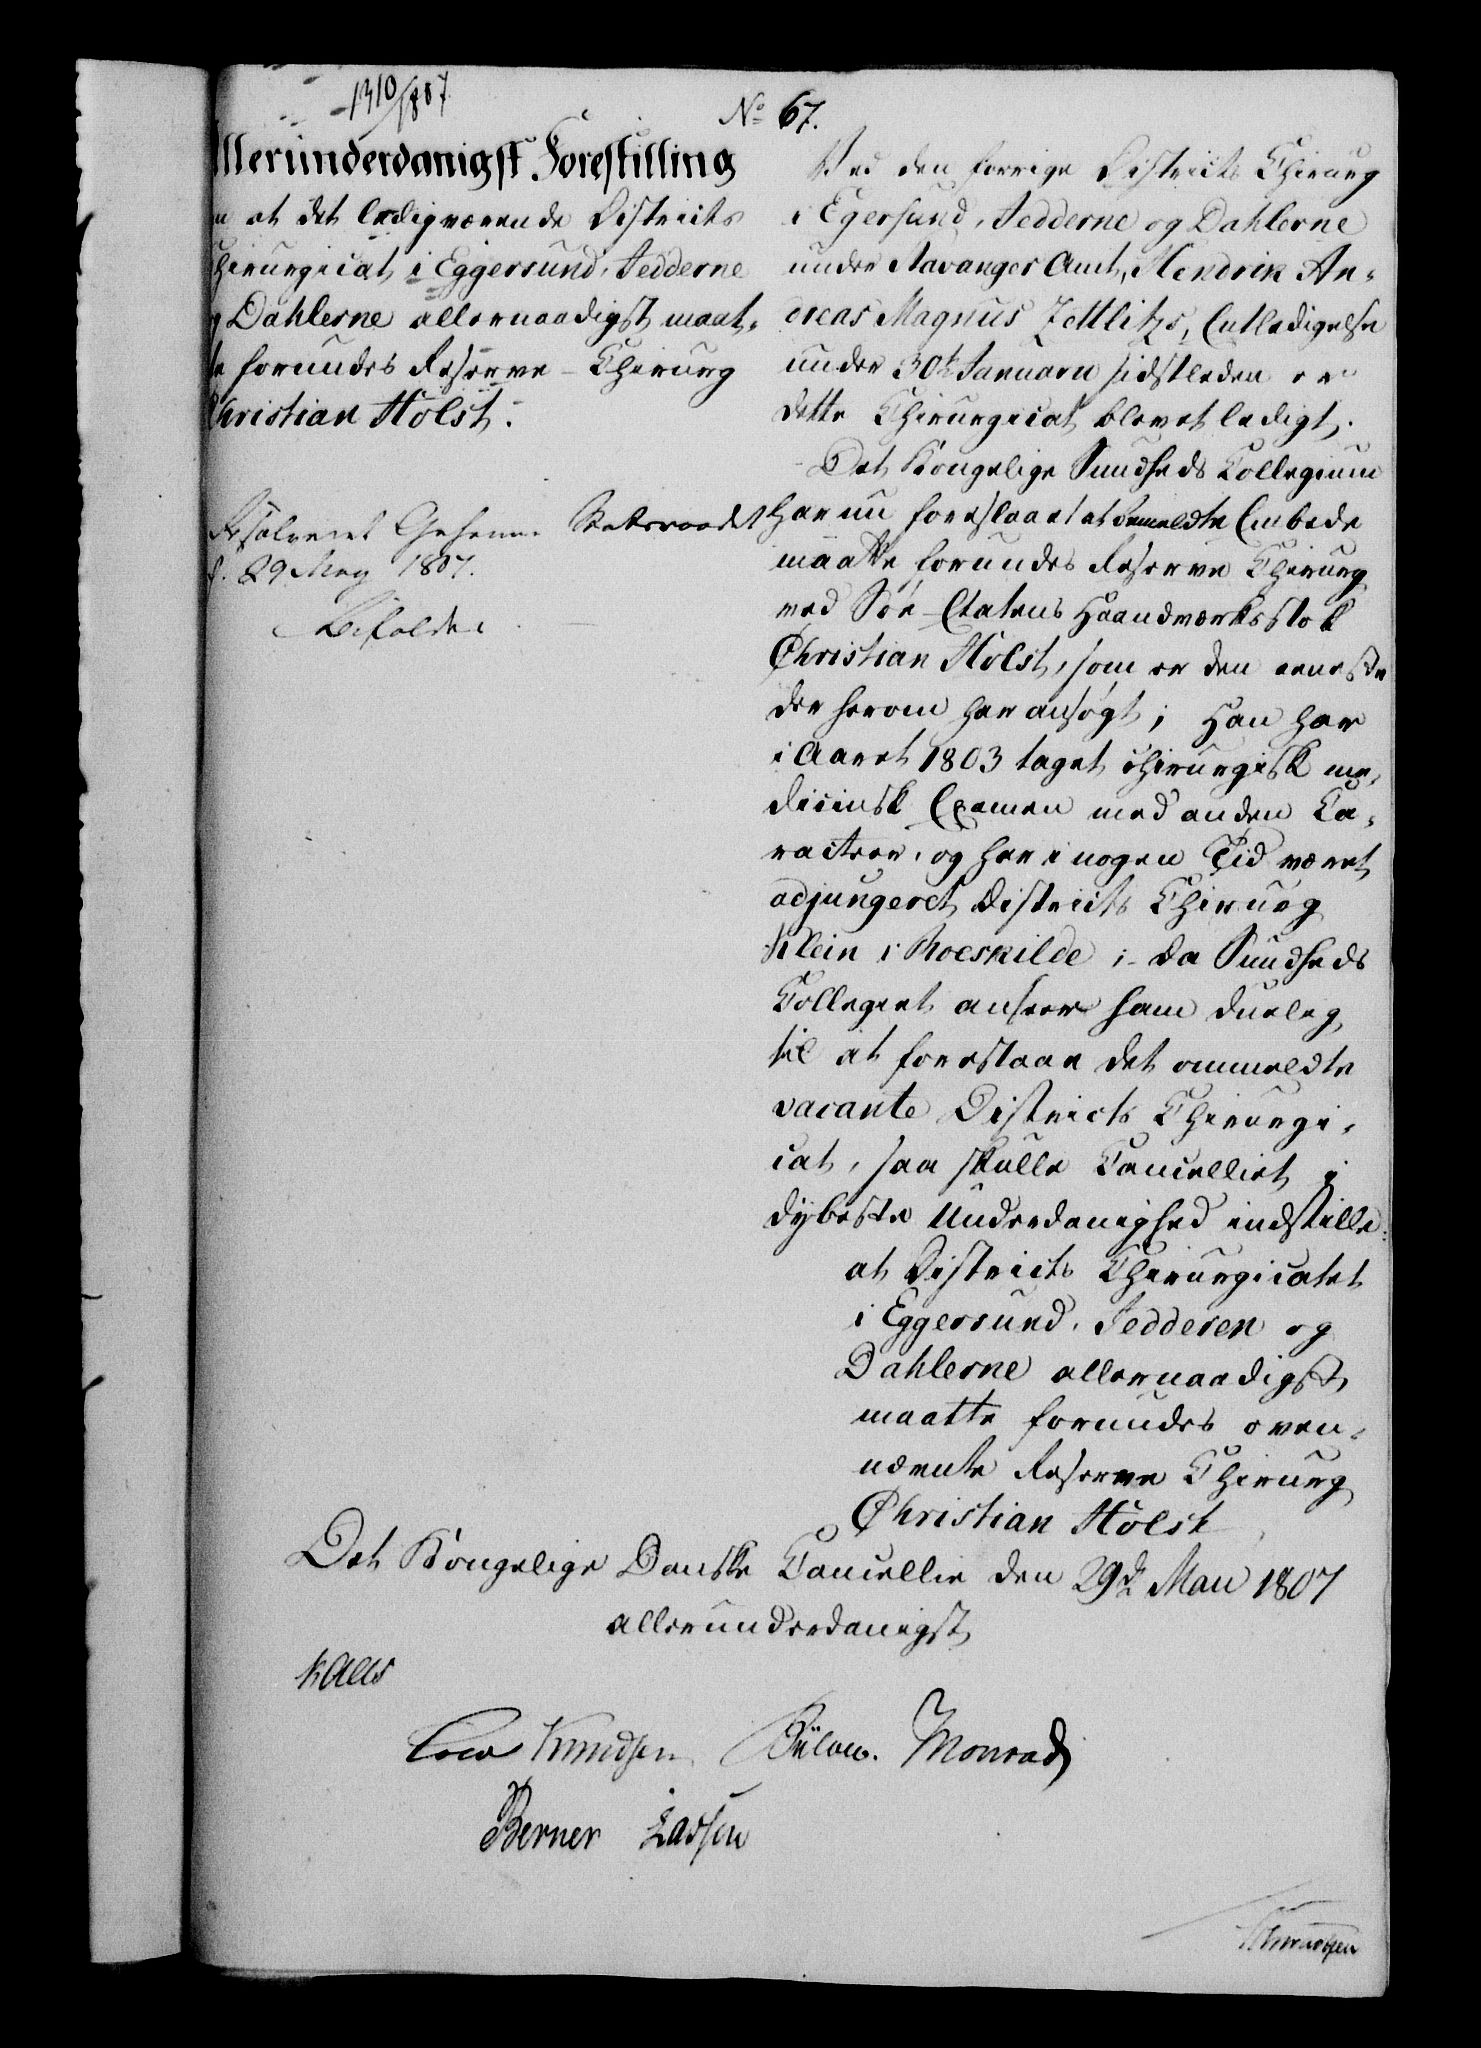 1310/1807
No 67.
Allerunderdanigst Forestilling
at det ledigværende Districts
Chirurgicat i Eggersund, Jedderne
og Dahlerne allernaadigst maat-
te forundes Reserve-Chirurg
Christian Holst.
Resolveret Geheime Statsraadet
d. 29 May 1807.
Bifaldes.
Ved den forrige Districts Chirurg
i Egersund, Jedderne og Dahlerne
under Stavanger Amt, Hendrik An-
dreas Magnus Zettlitzs, Entledigelse
under 30te Januarii sidstleden er
dette Chirurgicat blevet ledigt.
Det Kongelige Sundheds Collegium
har nu foreslaaet at bemeldte Embede
maatte forundes Reserve Chirurg
ved Söe-Etatens Haandværksstok
Christian Holst, som er den eeneste
der herom har ansøgt; Han har
i Aaret 1803 taget chirurgisk me-
dicinsk Examen med anden Ca-
racteer, og har i nogen Tid været
adjungeret Districts Chirurg
Klein i Roeskilde;- da Sundheds
Collegiet anseer ham duelig
til at forestaae det ommeldte
vacante Districts Chirurgi-
cat, saa skulle Cancelliet i
dybeste Underdanighed indstille:
at Districts Chirurgicatet
i Eggersund, Jedderen og
Dahlerne allernaadigst
maatte forundes oven-
nævnte Reserve Chirurg
Christian Holst
Det Kongelige Danske Cancellie den 29de Maii 1807
allerunderdanigst
Kaas
Cold Knudsen Bülow. Monrad
Berner Lassen
Knudsen